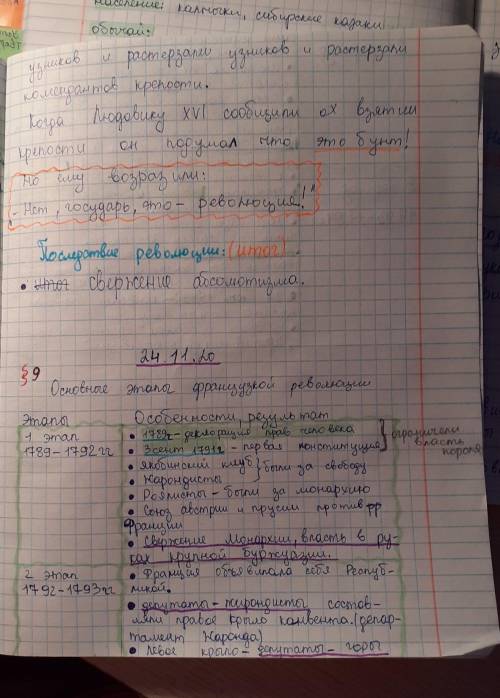 население: калмыки, сибирские казаки
обычай:
узников и растерзали узников и растерзали
комендантов крепости.
Когда Людовику XVI сообщили ох взятии
крепости он подумал что это бунт!
Но ему возразили:
"Нет, государь, это - революция!"
Последствие революции: (итог)
• итог свержение абсомотизма.
24.11.20
§9
Основные этапы французкой революции
Этапы Особенности, результат
1 этап • 1789г - декларация прав человека
1789-1792гг • 3 сент 1791г - первая конституция ограничели власть короля
• якобинский клуб
• Жарондисты были за свободу
• Роялисты - были за монархию
• Союз австрии и прусии против фр
Франции
• свержение монархии, власть в ру-
ках крупной буржуазии.
2 этап • Франция объявлала себя Респуб-
1792-1793гг ликой.
• депутаты-жирондисты состов-
ляли правое крыло конвента. (депар-
тамент Жаронда)
• левое крыло - депутаты - горы